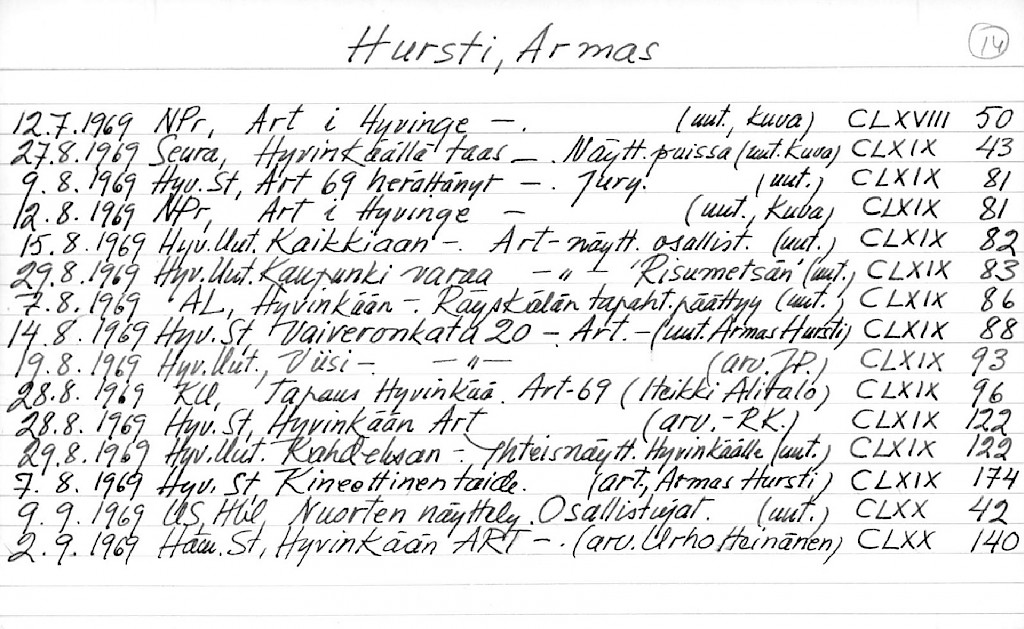 Hursti, Armas 14
12.7.1969 NPr, Art i Hyvinge –. (uut., kuva) CLXVIII 50
27.8.1969 Seura, Hyvinkäällä taas –. Näytt. puissa (uut. kuva) CLXIX 43
9.8.1969 Hyv. St, Art 69 herättänyt –. Jury. (uut.) CLXIX 81
12.8.1969 NPr, Art i Hyvinge – (uut., kuva) CLXIX 81
15.8.1969 Hyv. Uut. Kaikkiaan –. Art-näytt. osallist. (uut.) CLXIX 82
29.8.1969 Hyv. Uut. Kaupunki varaa – " – 'Risumetsän' (uut.) CLXIX 83
7.8.1969 AL, Hyvinkään –. Räyskälän tapaht. päättyy (uut.) CLXIX 86
14.8.1969 Hyv. St Vaiveronkatu 20 – Art. – (uut. Armas Hursti) CLXIX 88
19.8.1969 Hyv. Uut., Viisi –. – " – (arv. J.P.) CLXIX 93
28.8.1969 KU, Tapaus Hyvinkää. Art-69 (Heikki Alitalo) CLXIX 96
28.8.1969 Hyv. St, Hyvinkään Art (arv. – RK.) CLXIX 122
29.8.1969 Hyv. Uut. Kahdeksan –. Yhteisnäytt. Hyvinkäälle (uut.) CLXIX 122
7.8.1969 Hyv. St Kineettinen taide. (art., Armas Hursti) CLXIX 174
9.9.1969 US, Hki, Nuorten näyttely. Osallistujat. (uut.) CLXX 42
2.9.1969 Häm. St, Hyvinkään ART –. (arv. Urho Heinänen) CLXX 140